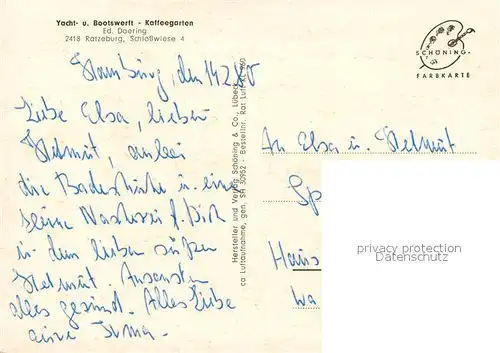 Yacht- u. Bootswerft - Kaffeegarten
Ed. Doering
2418 Ratzeburg, Schloßwiese 4
Hamburg, den 14.2.80
Liebe Elsa, lieber
Helmut, anbei
die Badeshüte u. eine
kleine Nascherei f. Dich
u. den lieben süßen
Helmut. Ansonsten
alles gesund. Alles Liebe
eure Irma.
Hersteller und Verlag Schöning & Co., Lübeck
ca Luftaufnahme, gen. SH 30952 - Bestellnr. Rat Luft KL 960
SCHÖNING-
FARBKARTE
An Elsa u. Helmut
Sp
Haus
Wa
privacy protection
Datenschutz